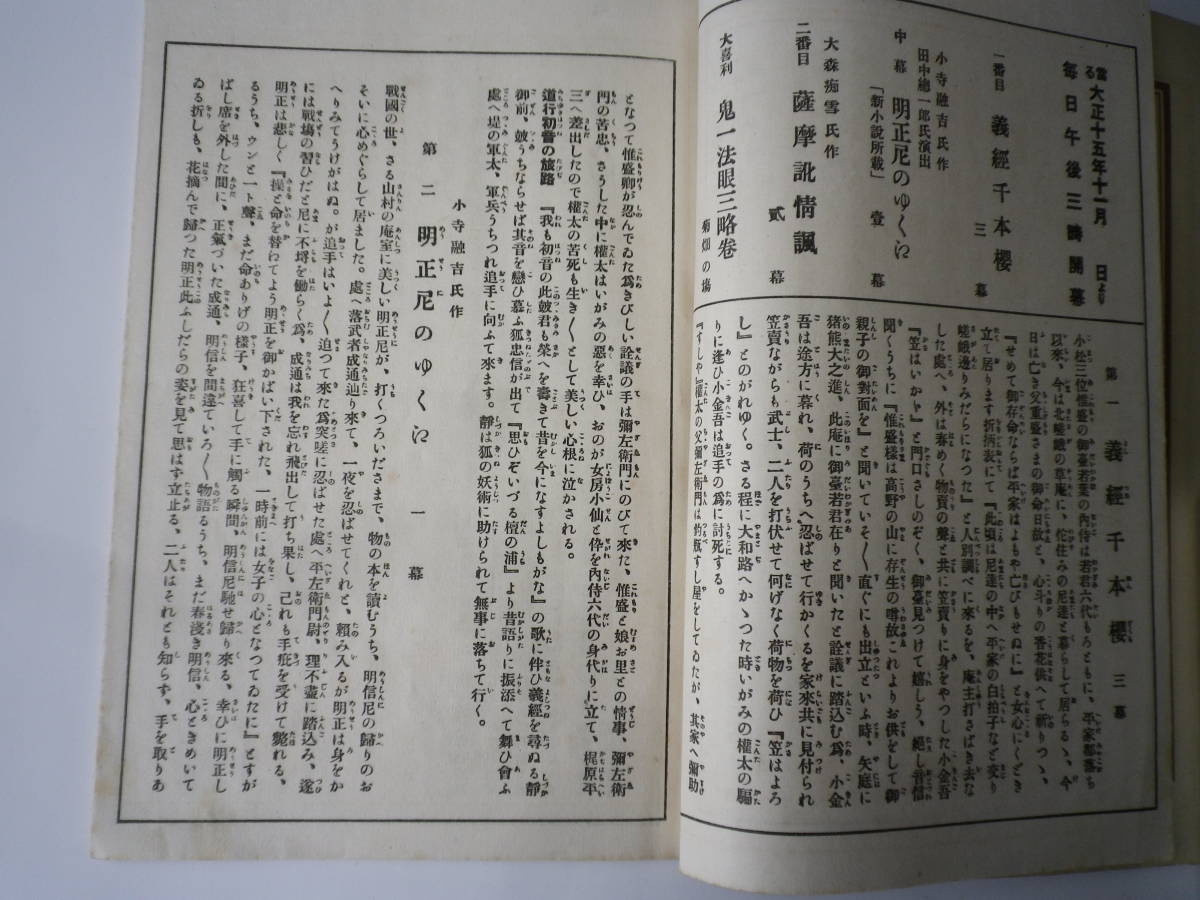 當る大正十五年十一月　日より
毎日午後三時開幕
一番目　義經千本櫻　三幕
小寺融吉氏作
田中總一郎氏演出
中幕　明正尼のゆくゑ　壹幕
「新小説所載」
大森痴雪氏作
二番目　薩摩訛情諷　貳幕
大喜利　鬼一法眼三略卷　菊畑の場
第一　義經千本櫻　三幕
小松三位惟盛の御臺若葉の內侍は若君六代もろともに、平家都落ち
以來、今は北嵯峨の草庵に、佗住みの尼達と暮らして居らるゝ、今
日は亡き父重盛さまの御命日故と、心斗りの香花供へて祈りつゝ、
『せめて御存命ならば平家はよもや亡びもせぬに』と女心にくどき
立て居ります折柄表にて『此頃は尼達の中へ平家の白拍子など交り
嵯峨邊りみだらになつた』と人別調べに來るを、庵主打さばき去な
した處へ、外は春めく物賣の聲と共に笠賣りに身をやつした小金吾
『笠はいかゞ』と門口さしのぞく、御臺見つけて嬉しう、絕し音信
聞くうちに『惟盛樣は高野の山に存生の噂故これよりお供をして御
親子の御對面を』と聞いていそ〳〵直ぐにも出立といふ時、矢庭に
猪熊大之進、此庵に御臺若君在りと聞いたと詮議に踏込む、小金
吾は途方に暮れ、荷のうちへ忍ばせて行かくるを家來共に見付られ
笠賣ながらも武士、二人を打伏せて何げなく荷物を荷ひ『笠はよろ
し』とのがれゆく。さる程に大和路へかゝつた時いがみの權太の騙
りに逢ひ小金吾は追手の爲に討死する。
『すしや』權太の父彌左衞門は釣瓶すし屋をしてゐたが、其家へ彌助
となつて惟盛卿が忍んでゐた爲きびしい詮議の手は彌左衞門にのびて來た、惟盛と娘お里との情事、彌左衞
門の苦忠、さうした中に權太はいがみの惡を幸ひ、おのが女房小仙と伜を內侍六代の身代りに立て、梶原平
三へ差出したので權太の苦死も生き〳〵として美しい心根に泣かされる。
道行初音の旅路　『我も初音の此皷君も榮へを壽きて昔を今になすよしもがな』の歌に伴ひ義經を尋ぬる靜
御前、皷うちならせば其音を戀ひ慕ふ狐忠信が出て『思ひぞいづる檀の浦』より昔語りに振添へて舞ひ會ふ
處へ堤の軍太、軍兵うちつれ追手に向ふて來ます。靜は狐の妖術に助けられて無事に落ちて行く。
小寺融吉氏作
第二　明正尼のゆくゑ　一幕
戰國の世、さる山村の庵室に美しい明正尼が、打くつろいださまで、物の本を讀むうち、明信尼の歸りのお
そいに心めぐらして居ました。處へ落武者成通辿り來て、一夜を忍ばせてくれと、賴み入るが明正は身をか
へりみてうけがはぬ。が追手はいよ〳〵迫つて來た爲突嗟に忍ばせた處へ平左衞門尉、理不盡に踏込み、遂
には戰場の習ひだと尼に不埒を働らく爲、成通は我を忘れ飛出して打ち果し、己れも手疵を受けて斃れる、
明正は悲しく『操と命を替わてよう明正を御かばい下された、一時前には女子の心となつてゐたに』とすが
るうち、ウンと一ト聲、まだ命ありげの樣子、狂喜して手に觸る瞬間、明信尼馳せ歸り來る、幸ひに明正し
ばし席を外した間に、正氣づいた成通、明信を間違ていろ〳〵物語るうち、まだ春淺き明信、心ときめいて
ゐる折しも、花摘んで歸つた明正此ふしだらの姿を見て思はず立止る、二人はそれとも知らず、手を取りあ